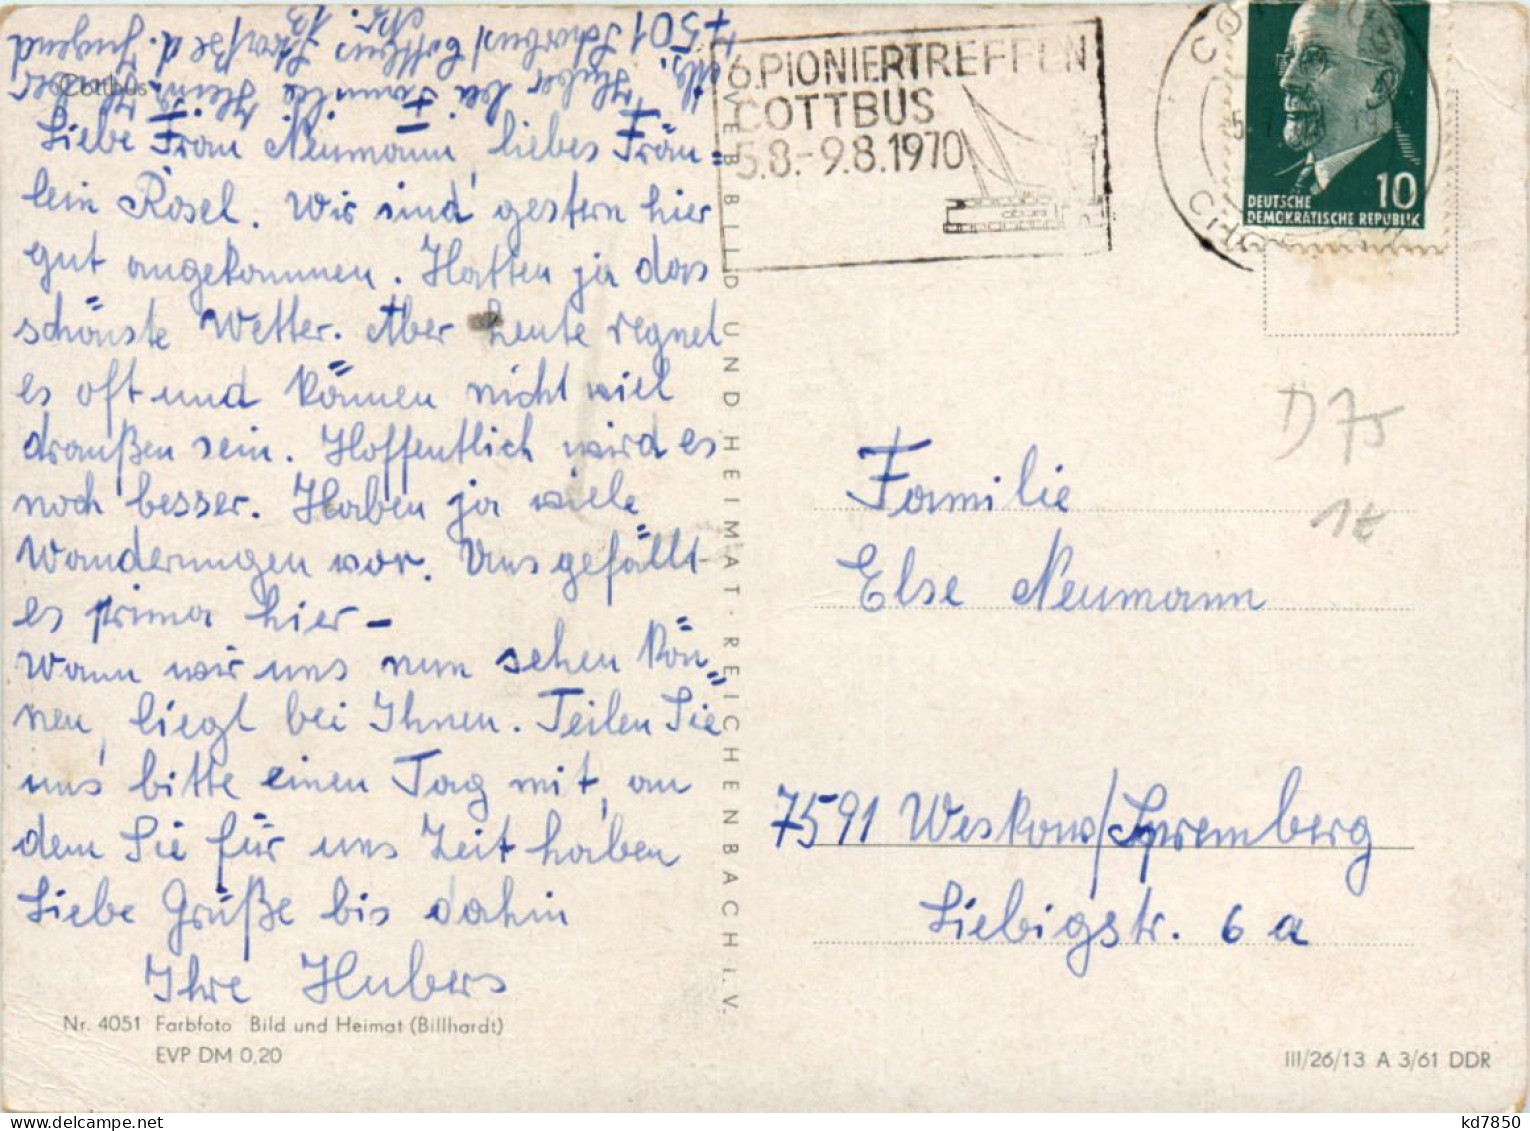 Abs. Huber bei Familie Heinz Huber
7501 Schorbus/Cottbus Straße d. Jugend
Nr. 13
Cottbus
Liebe Frau Neumann, liebes Fräu=
lein Rosel. Wir sind gestern hier
gut angekommen. Hatten ja das
schönste Wetter. Aber heute regnet
es oft und können nicht viel
draußen sein. Hoffentlich wird es
noch besser. Haben ja viele
Wanderungen vor. Uns gefällt
es prima hier –
Wann wir uns nun sehen kön=
nen, liegt bei Ihnen. Teilen Sie
uns bitte einen Tag mit, an
dem Sie für uns Zeit haben
Liebe Grüße bis dahin
Ihre Hubers
Nr. 4051 Farbfoto Bild und Heimat (Billhardt)
EVP DM 0,20
VEB BILD UND HEIMAT · REICHENBACH i. V.
6. PIONIERTREFFEN
COTTBUS
5.8.-9.8.1970
10
DEUTSCHE
DEMOKRATISCHE REPUBLIK
D75
1t
Familie
Else Neumann
7591 Weskow/Spremberg
Liebigstr. 6 a
III/26/13 A 3/61 DDR
kd7850